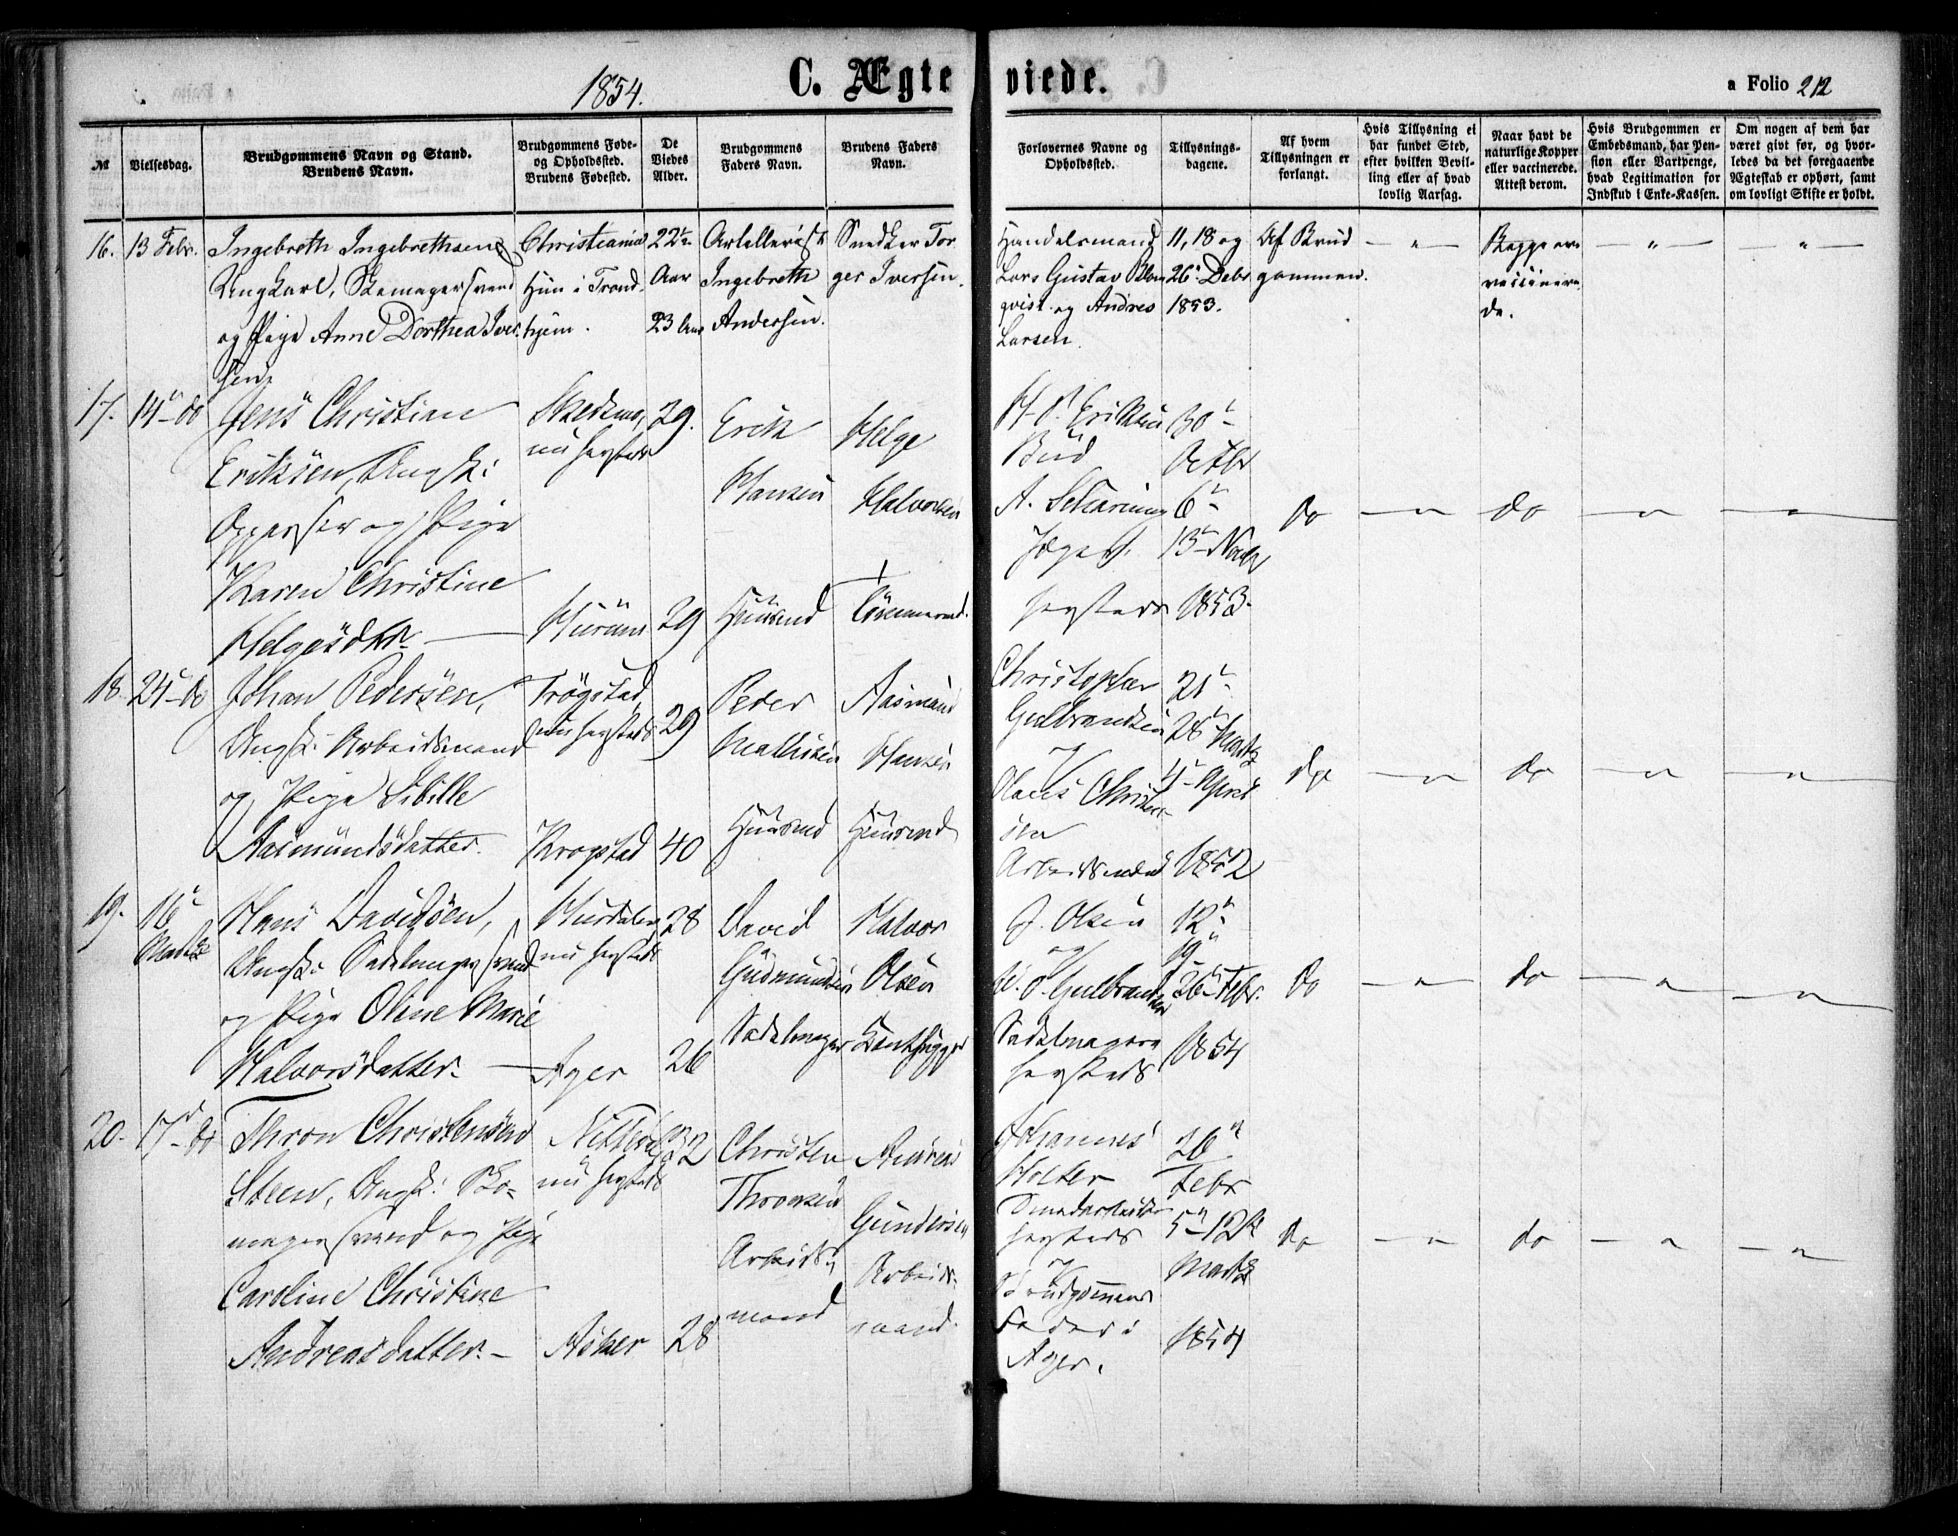 1854.
C. Ægteviede.
a Folio 212
№
Vielsesdag.
Brudgommens Navn og Stand.
Brudens Navn.
Brudgommens Føde-
og Opholdssted.
Brudens Fødested.
De
Viedes
Alder.
Brudgommens
Faders Navn.
Brudens Faders
Navn.
Forlovernes Navne og
Opholdssted.
Tillysnings-
dagene.
Af hvem
Tillysningen er
forlangt.
Hvis Tillysning ei
har fundet Sted,
efter hvilken Bevil-
ling eller af hvad
lovlig Aarsag.
Naar havt de
naturlige Kopper
eller vaccinerede.
Attest derom.
Hvis Brudgommen er
Embedsmand, har Pen-
sion eller Vartpenge,
hvad Legitimation for
Indskud i Enke-Kassen.
Om nogen af dem har
været gift før, og hvor-
ledes da det foregaaende
Ægteskab er ophørt, samt
om lovligt Skifte er holdt.
16.
13 Febr.
Ingebreth Ingebrethsen
Ungkarl, Skomagersvend
og Pige Anne Dorthea Iver-
sen
Christiania
Hun i Trond-
hjem.
22½
Aar
23 Aar
Artellerist
Ingebreth
Andersen.
Snedker Tor
ger Iversen.
Handelsmand
Lars Gustav Blom
qvist og Andres
Larsen
11, 18 og
26 Debr
1853.
Af Brud
gommen.
— " —
Begge ere
vaccinere
de.
— " —
— " —
17.
14 do
Jens Christian
Eriksen, Ungk:
Oppasser og Pige
Karen Christine
Helgesdtr
Skedsmo,
nu hersteds
Hurum
29.
29
Erik
Hansen
Huusmd
Helge
Halvorsen
Tømmermd.
H. P. Eriksen
Bud
A. Scharning
hersteds
30
Octbr
6
13 Novbr
1853.
do
— " —
do
— " —
— " —
18.
24 do
Johan Pedersen,
Ungk: Arbeidsmand
og Pige Sibille
Aasmundsdatter.
Trøgstad,
nu hersteds
Krogstad
29
40
Peder
Mathisen
Huusmd
Aasmund
Hansen
Huusmd
Christopher
Gulbrandsen
og
Olaus Christen
sen
Arbeidsmænd
21
28 Marts
4 April
1852
do
— " —
do
— " —
— " —
19.
16
Marts
Hans Davidsen,
Ungk: Sadelmagersvend
og Pige Oline Marie
Halvorsdatter.
Hurdalen
nu hersteds
Ager
28
26
David
Gudmundsen
Sadelmager
Halvor
Olsen
J. Olsen
og
Gulbrandsen
Sadelmagere
hersteds
12
19
26 Febr.
1854
do
— " —
do
— " —
— " —
20.
17 do
Thron Christensen
Steen, Ungk: Sko-
magersvend og Pige
Caroline Christine
Andreasdatter. —
Nittedal
nu hersteds
Asker
32
28
Christen
Thronsen
Arbeids-
mand
Andreas
Gundersen
Arbeids-
mand.
Johannes
Holter
hersteds
og
Brudgommens
Fader i
Ager.
26
Febr
5 - 12te
Marts
1854
do
— " —
do
— " —
— " —